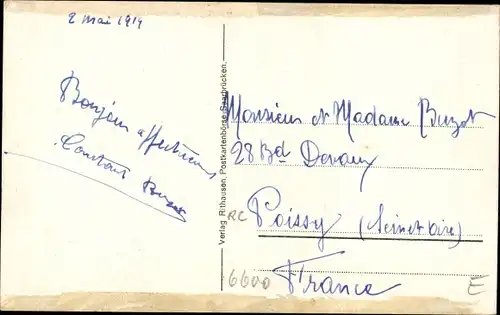 2 mai 1919
Bonjour affectueux
Constant Buzot
Verlag Rithausen, Postkartenbörse, Saarbrücken.
Monsieur et Madame Buzot
28 Bd Devaux
RC Poissy (Seine et Oise)
6600 France E